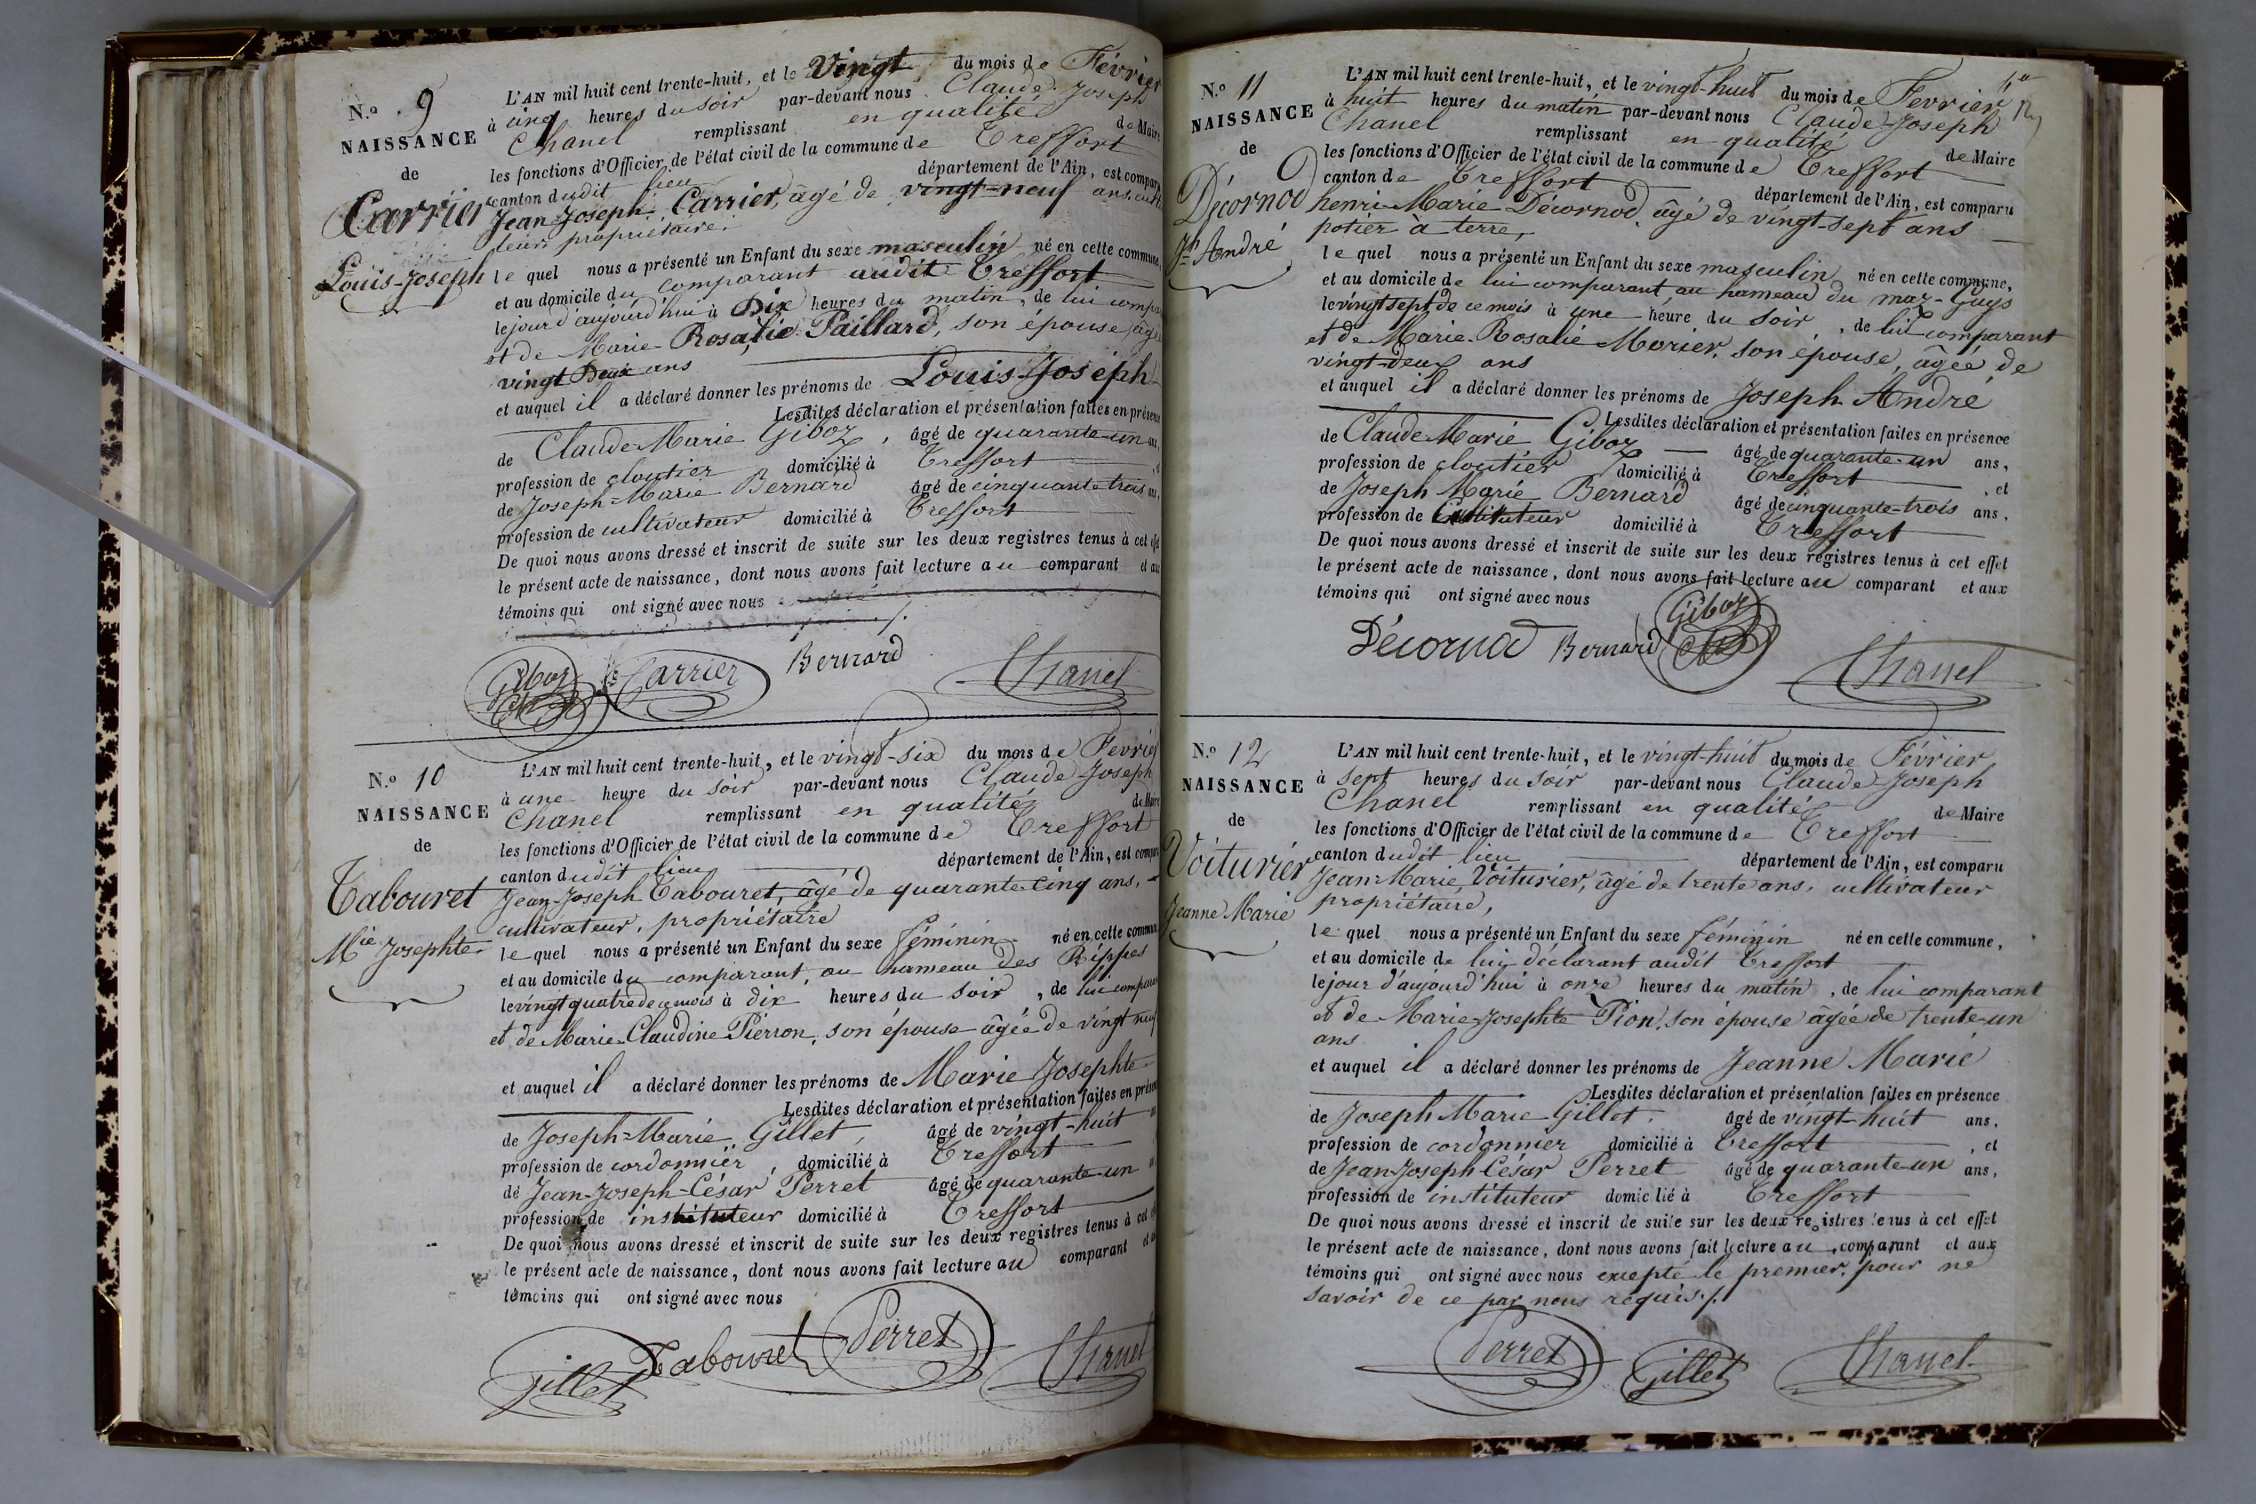 N.o 9
NAISSANCE
de
Carrier
Louis-Joseph
L'AN mil huit cent trente-huit, et le Vingt du mois de Février
à cinq heures du soir par-devant nous Claude Joseph
Chanel remplissant en qualité de Maire
les fonctions d'Officier de l'état civil de la commune de Treffort
canton dudit lieu département de l'Ain, est comparu
Jean-Joseph Carrier, âgé de vingt-neuf ans,
propriétaire.
le quel nous a présenté un Enfant du sexe masculin né en cette commune,
et au domicile du comparant audit Treffort
le jour d'aujourd'hui à Dix heures du matin, de lui
et de Marie-Rosalie Paillard, son épouse,
vingt Deux ans
et auquel il a déclaré donner les prénoms de Louis-Joseph
Lesdites déclaration et présentation faites en présence
de Claude Marie Giboz, âgé de quarante-un ans,
profession de cloutier domicilié à Treffort
de Joseph=Marie Bernard âgé de cinquante trois ans,
profession de cultivateur domicilié à Treffort
De quoi nous avons dressé et inscrit de suite sur les deux registres tenus à cet effet
le présent acte de naissance, dont nous avons fait lecture au comparant et aux
témoins qui ont signé avec nous
Giboz Carrier Bernard Chanel
N.o 10
NAISSANCE
de
Tabouret
Mie Josephte
L'AN mil huit cent trente-huit, et le vingt-six du mois de Fevrier
à une heure du soir par-devant nous Claude Joseph
Chanel remplissant en qualité de Maire
les fonctions d'Officier de l'état civil de la commune de Treffort
canton dudit lieu département de l'Ain, est comparu
Jean-Joseph Tabouret, âgé de quarante-Cinq ans,
cultivateur, propriétaire
le quel nous a présenté un Enfant du sexe féminin né en cette commune
et au domicile du comparant, au hameau des Rippes
le vingt quatre de ce mois à dix heures du soir, de lui comparant
et de Marie-Claudine Pierron, son épouse âgée de vingt neuf
et auquel il a déclaré donner les prénoms de Marie Josephte
Lesdites déclaration et présentation faites en présence
de Joseph=Marie Gillet, âgé de vingt-huit
profession de cordonnier, domicilié à Treffort
de Jean-Joseph-César Perret âgé de quarante-un
profession de instituteur domicilié à Treffort
De quoi nous avons dressé et inscrit de suite sur les deux registres tenus à cet
le présent acte de naissance, dont nous avons fait lecture au comparant et
témoins qui ont signé avec nous
Gillet Tabouret Perret Chanel
N.o 11
NAISSANCE
de
Décornod
Jh André
L'AN mil huit cent trente-huit, et le vingt-huit du mois de Fevrier
à huit heures du matin par-devant nous Claude-Joseph
Chanel remplissant en qualité de Maire
les fonctions d'Officier de l'état civil de la commune de Treffort
canton de Treffort département de l'Ain, est comparu
henri-Marie Décornod, âgé de vingt-sept ans
potier à terre,
le quel nous a présenté un Enfant du sexe masculin né en cette commune,
et au domicile de lui comparant au hameau du maz-Guys
le vingt sept de ce mois à une heure du soir, de lui comparant
et de Marie-Rosalie Morier, son épouse, âgée de
vingt-deux ans
et auquel il a déclaré donner les prénoms de Joseph André
Lesdites déclaration et présentation faites en présence
de Claude Marie Giboz âgé de quarante-un ans,
profession de cloutier domicilié à Treffort, et
de Joseph Marie Bernard âgé de cinquante-trois ans,
profession de domicilié à Treffort
De quoi nous avons dressé et inscrit de suite sur les deux registres tenus à cet effet
le présent acte de naissance, dont nous avons fait lecture au comparant et aux
témoins qui ont signé avec nous
Giboz
Décornod Bernard Chanel
N.o 12
NAISSANCE
de
Voiturier
Jeanne Marie
L'AN mil huit cent trente-huit, et le vingt-huit du mois de Février
à sept heures du soir par-devant nous Claude-Joseph
Chanel remplissant en qualité de Maire
les fonctions d'Officier de l'état civil de la commune de Treffort
canton dudit lieu département de l'Ain, est comparu
Jean-Marie Voiturier, âgé de trente ans, cultivateur
propriétaire,
le quel nous a présenté un Enfant du sexe féminin né en cette commune,
et au domicile de lui déclarant audit Treffort
le jour d'aujourd'hui à onze heures du matin, de lui comparant
et de Marie-Josephte Pion, son épouse âgée de trente-un
ans
et auquel il a déclaré donner les prénoms de Jeanne Marie
Lesdites déclaration et présentation faites en présence
de Joseph Marie Gillet, âgé de vingt-huit ans,
profession de cordonnier domicilié à Treffort, et
de Jean-Joseph-César Perret âgé de quarante-un ans,
profession de instituteur domicilié à Treffort
De quoi nous avons dressé et inscrit de suite sur les deux registres tenus à cet effet
le présent acte de naissance, dont nous avons fait lecture au comparant et aux
témoins qui ont signé avec nous excepté le premier, pour ne
savoir de ce par nous requis./.
Perret Gillet Chanel